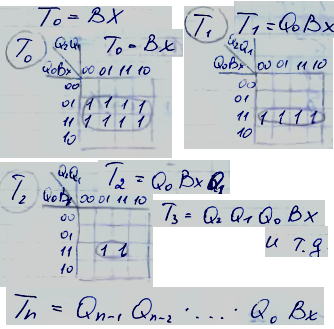 T₀ = BX
T₀
T₀ = Bx
Q₂Q₁
Q₀Bx 00 01 11 10
00
01 1 1 1 1
11 1 1 1 1
10
T₁
T₁ = Q₀Bx
Q₂Q₁
Q₀Bx 00 01 11 10
00
01
11 1 1 1 1
10
T₂
T₂ = Q₀ Bx Q₁
Q₂Q₁
Q₀Bx 00 01 11 10
00
01
11 1 1
10
T₃ = Q₂ Q₁ Q₀ Bx
и т.д
Tn = Qn-1 Qn-2 · .... · Q₀ Bx